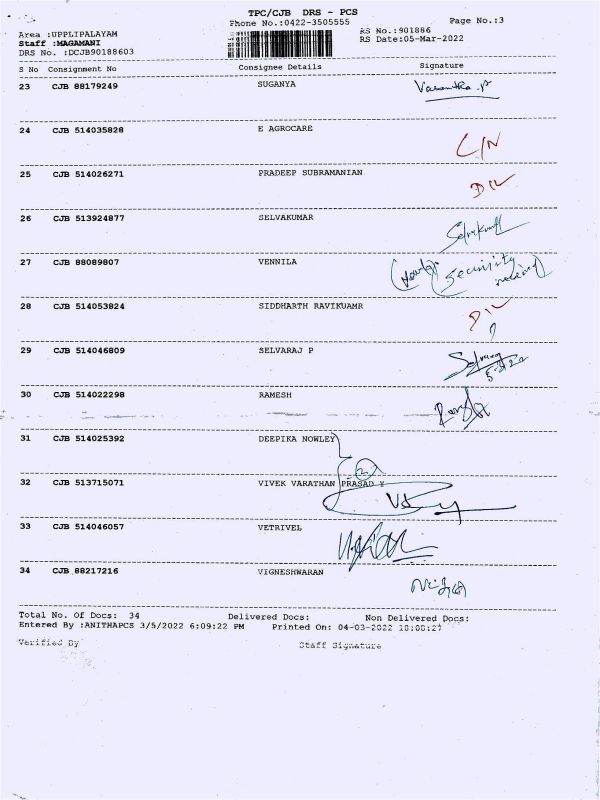 TPC/CJB DRS - PCS
Phone No.:0422-3505555
Page No.:3
Area :UPPLIPALAYAM
RS No.:901886
Staff :MAGAMANI
RS Date:05-Mar-2022
DRS No. :DCJB90188603
S No Consignment No Consignee Details Signature
23 CJB 88179249 SUGANYA
24 CJB 514035828 E AGROCARE
25 CJB 514026271 PRADEEP SUBRAMANIAN
26 CJB 513924877 SELVAKUMAR
27 CJB 88089807 VENNILA
Security
received
28 CJB 514053824 SIDDHARTH RAVIKUAMR
29 CJB 514046809 SELVARAJ P
30 CJB 514022298 RAMESH
31 CJB 514025392 DEEPIKA NOWLEY
32 CJB 513715071 VIVEK VARATHAN PRASAD Y
33 CJB 514046057 VETRIVEL
34 CJB 88217216 VIGNESHWARAN
Total No. Of Docs: 34 Delivered Docs: Non Delivered Docs:
Entered By :ANITHAPCS 3/5/2022 6:09:22 PM Printed On: 04-03-2022 18:08:27
Verified By Staff Signature